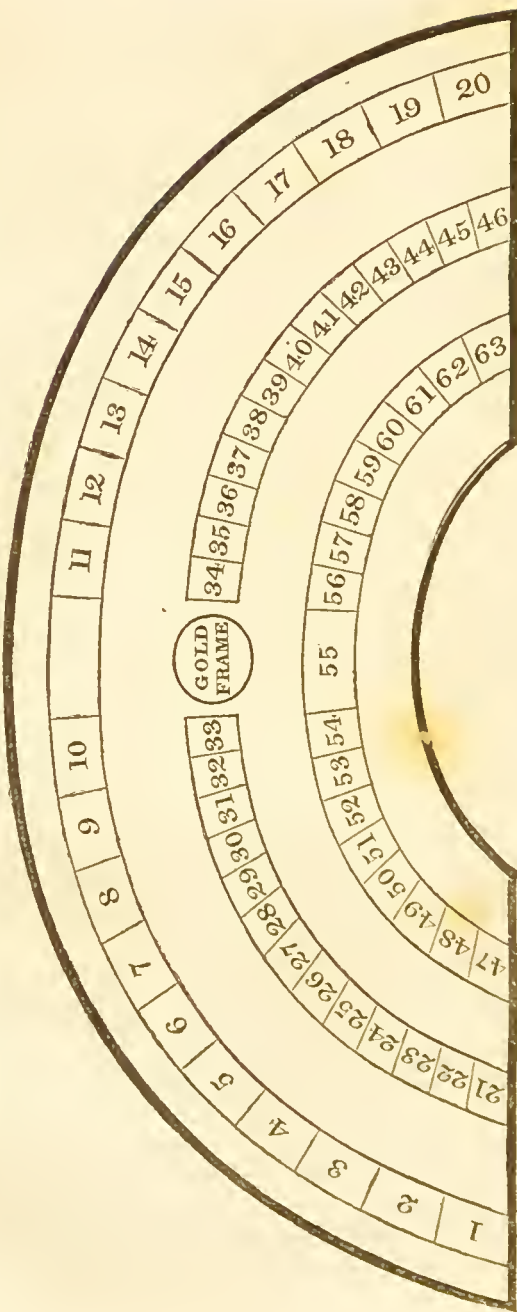 1 2 3 4 5 6 7 8 9 10 11 12 13 14 15 16 17 18 19 20
21 22 23 24 25 26 27 28 29 30 31 32 33
GOLD
FRAME
34 35 36 37 38 39 40 41 42 43 44 45 46
47 48 49 50 51 52 53 54 55 56 57 58 59 60 61 62 63